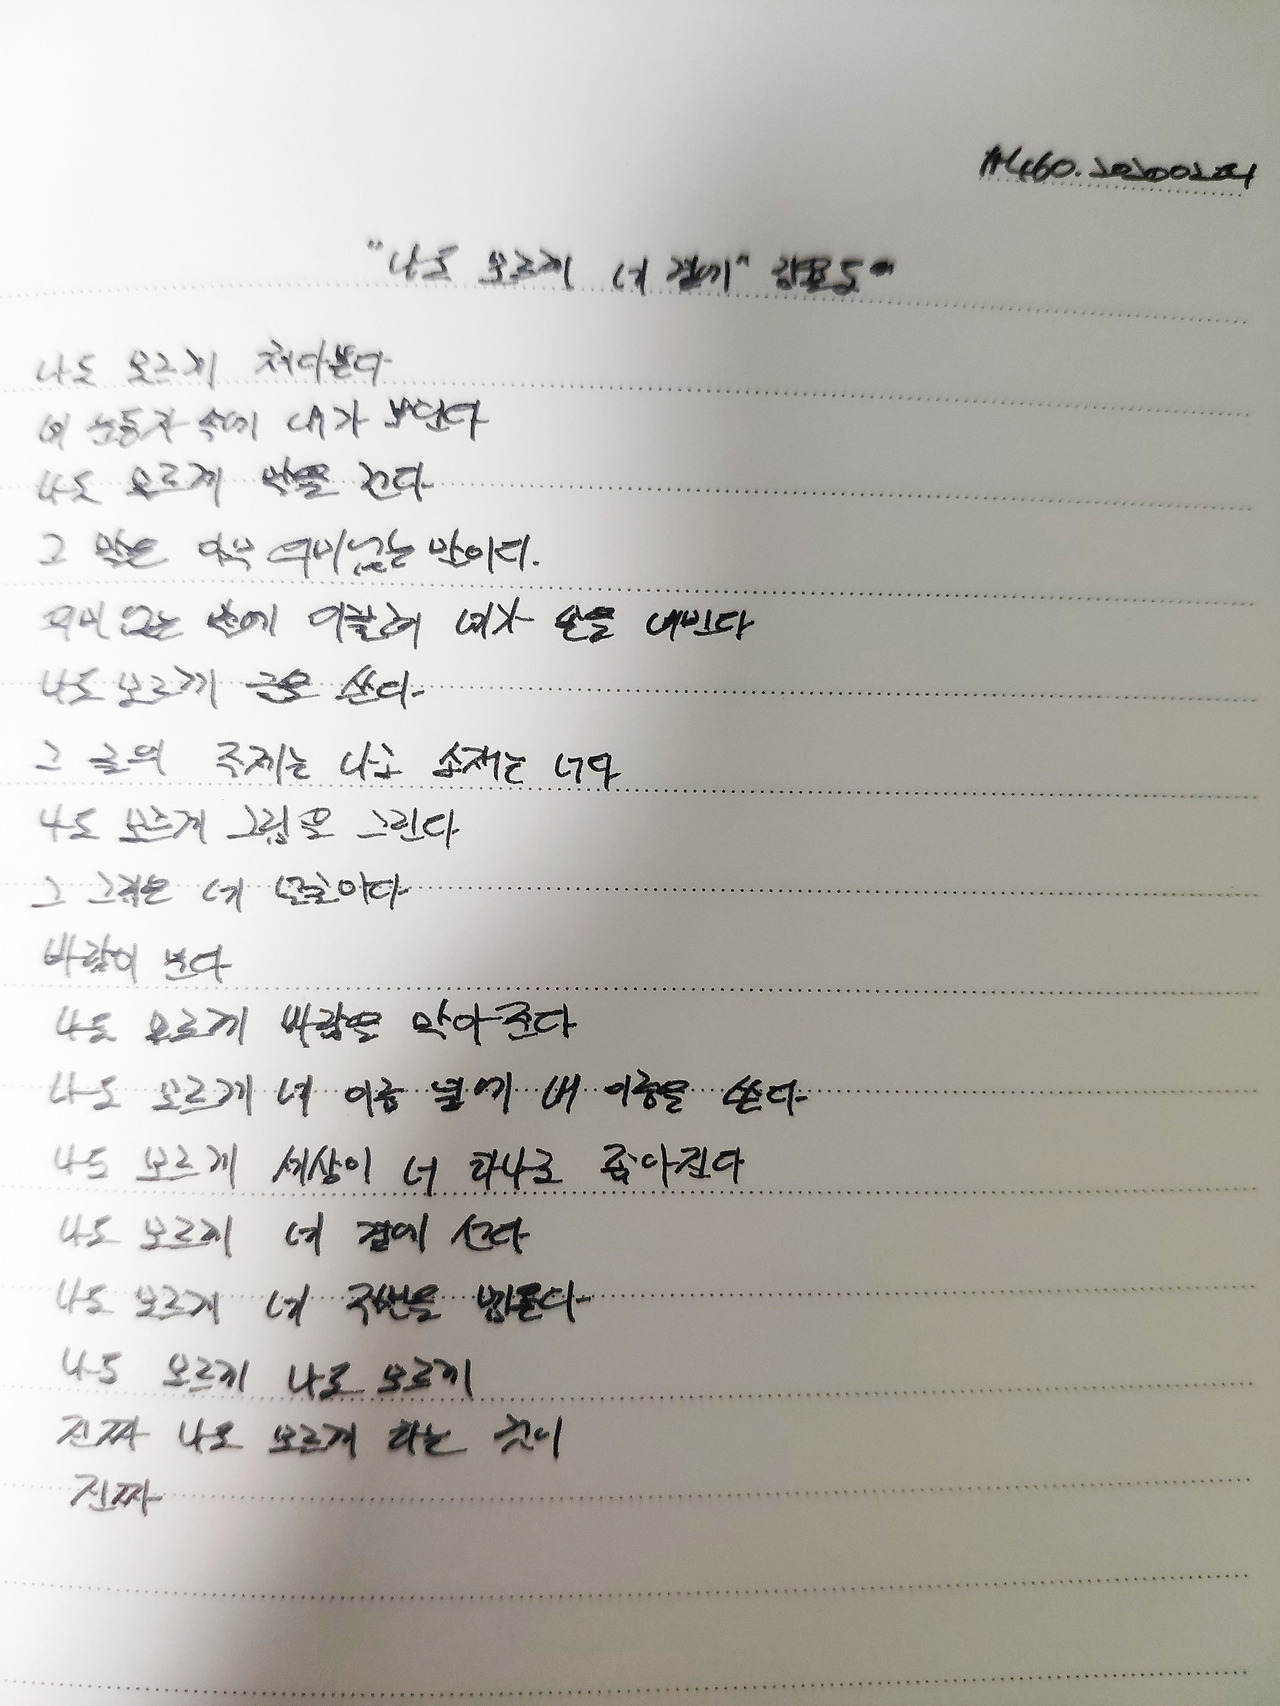 #460. 20200224
"나도 모르게 네 곁에"
나도 모르게 쳐다본다
네 눈동자 속에 내가 보인다
나도 모르게 말을 건다
그 말은 아무 의미 없는 말이다.
의미 없는 말에 이끌려 네가 손을 내민다
나도 모르게 글을 쓴다
그 글의 주제는 나고 소재는 너다
나도 모르게 그림을 그린다
그 그림은 네 모습이다
바람이 분다
나도 모르게 바람을 막아 준다
나도 모르게 네 이름 옆에 내 이름을 쓴다
나도 모르게 세상이 너 하나로 좁아진다
나도 모르게 네 곁에 선다
나도 모르게 네 주변을 맴돈다
나도 모르게 나도 모르게
진짜 나도 모르게 하는 것이
진짜